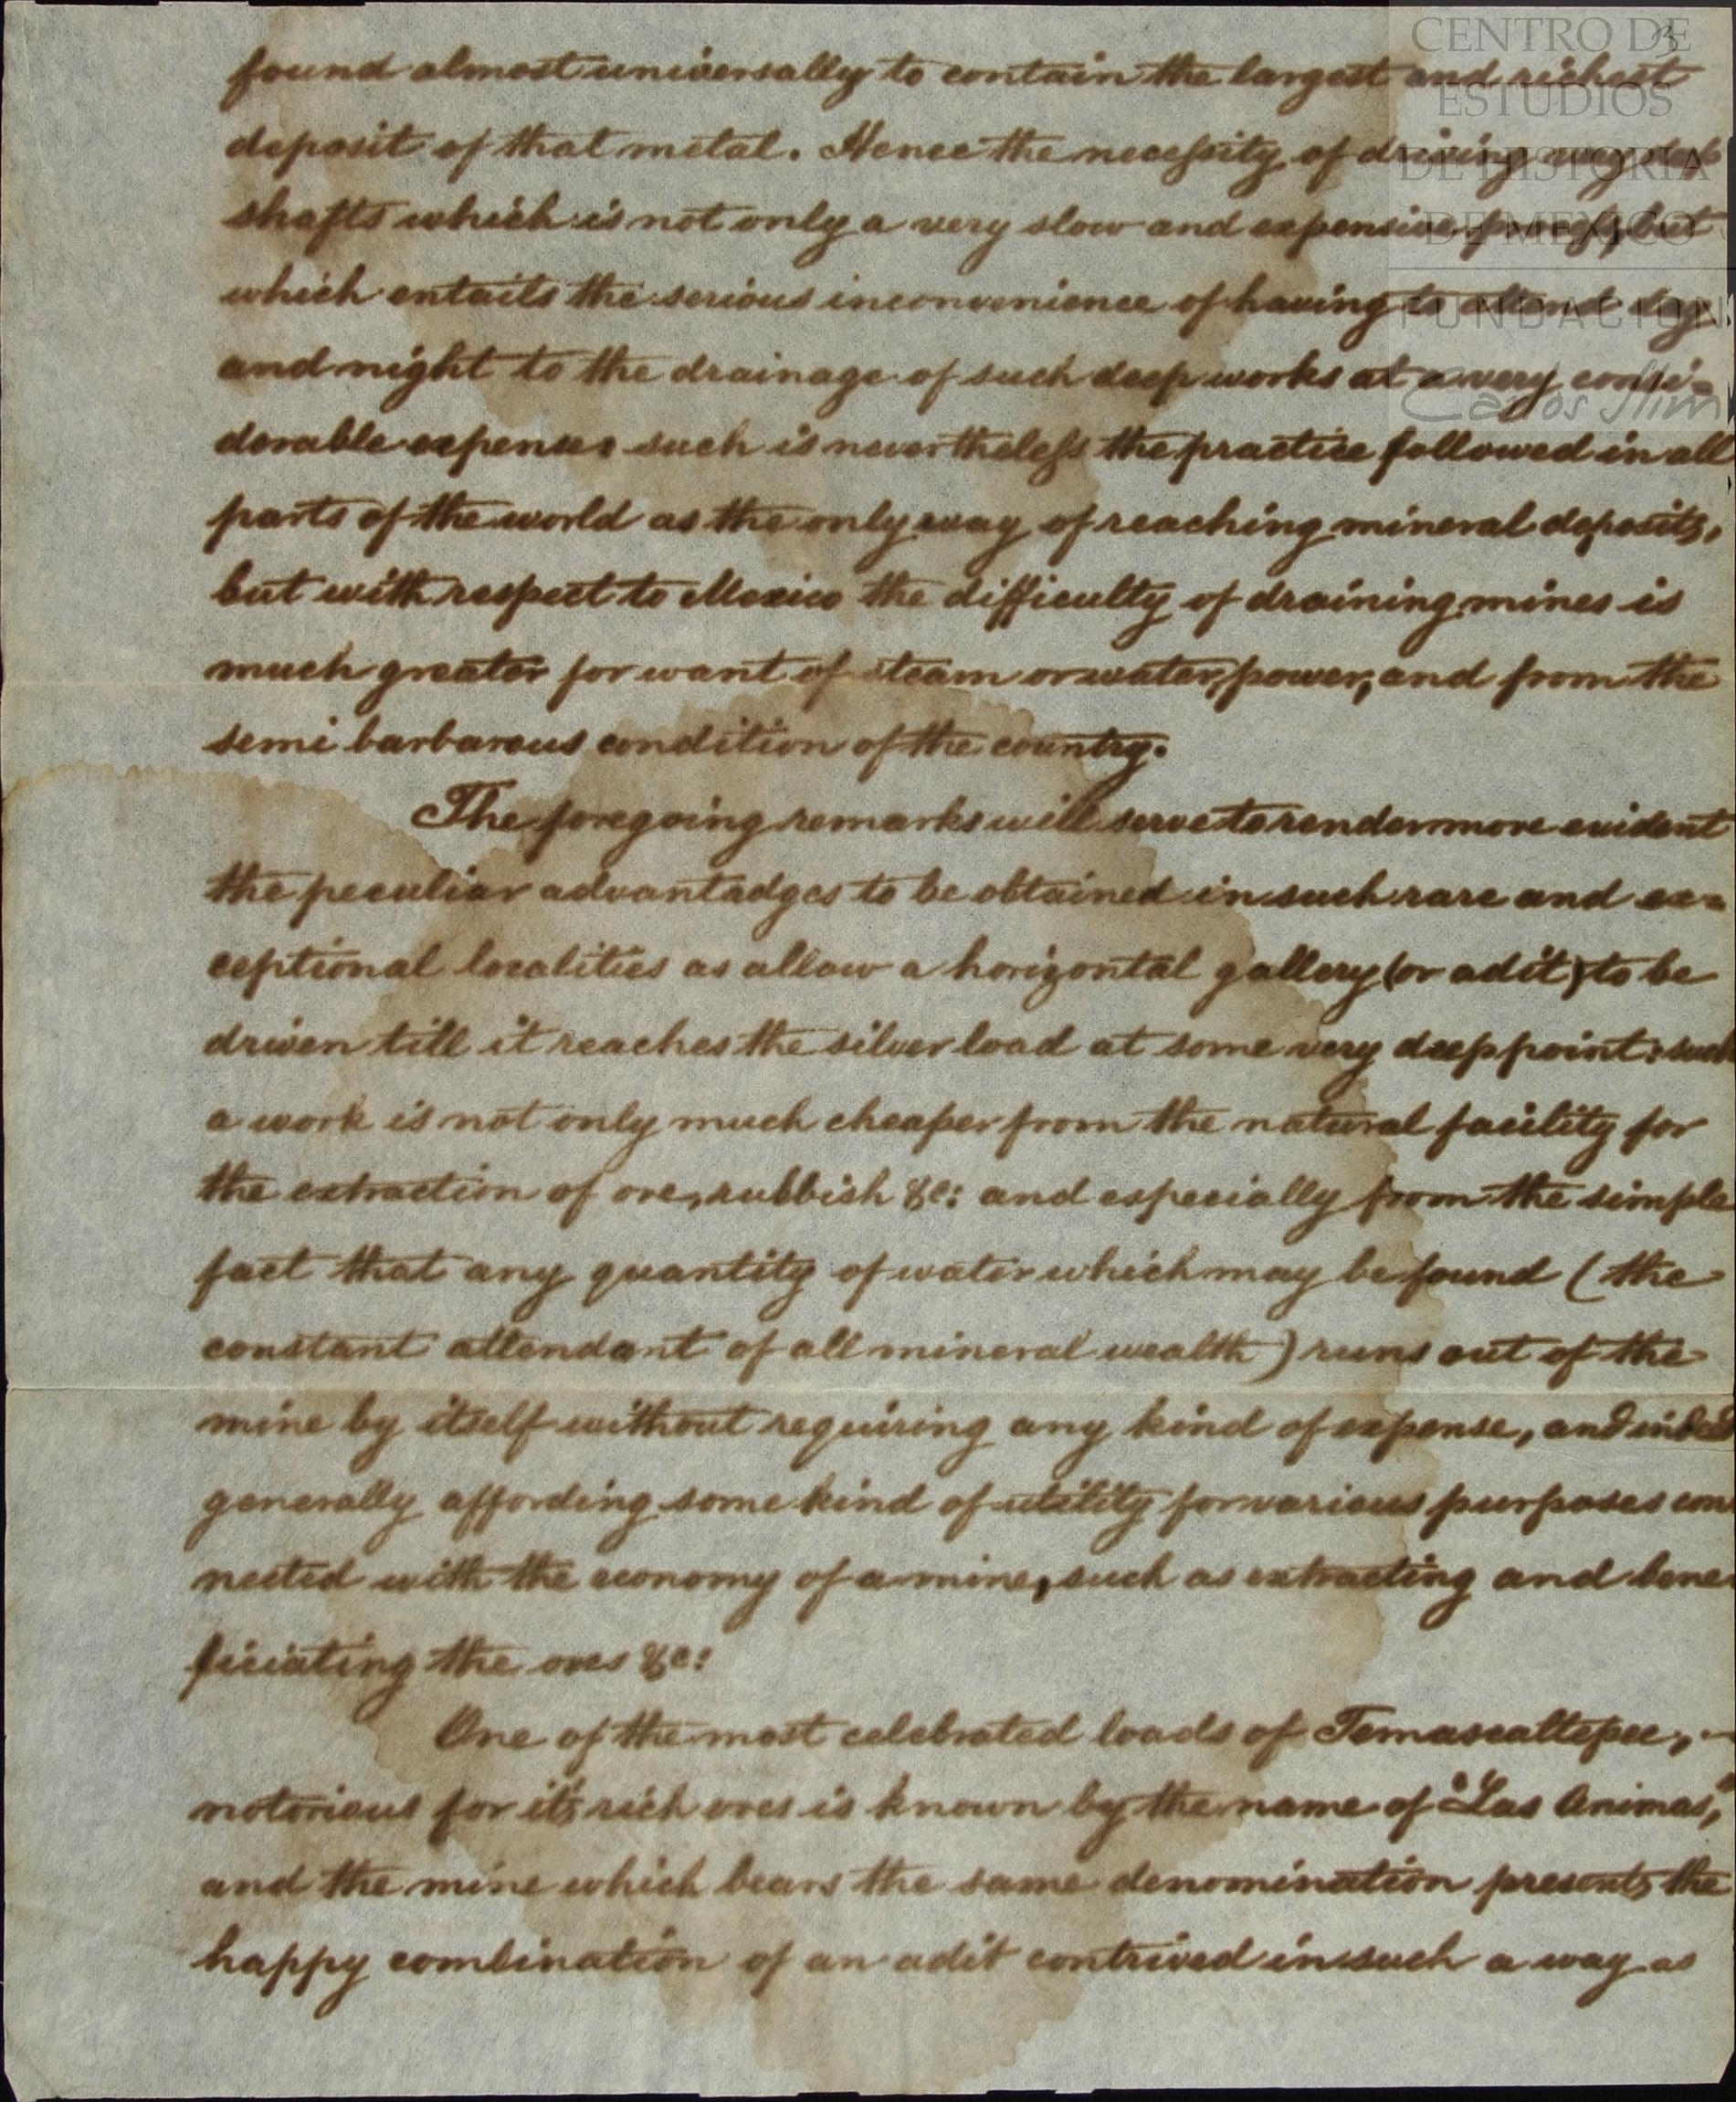 3
CENTRO DE
ESTUDIOS
DE HISTORIA
DE MEXICO
FUNDACION
Carlos Slim
found almost universally to contain the largest and richest
deposit of that metal. Hence the necessity of driving very deep
shafts which is not only a very slow and expensive process, but
which entails the serious inconvenience of having to attend day
and night to the drainage of such deep works at a very consi=
derable expense: such is nevertheless the practice followed in all
parts of the world as the only way of reaching mineral deposits,
but with respect to Mexico the difficulty of draining mines is
much greater for want of steam or water, power, and from the
semi barbarous condition of the country.
The foregoing remarks will serve to render more evident
the peculiar advantadges to be obtained in such rare and ex=
ceptional localities as allow a horizontal gallery (or adit) to be
driven till it reaches the silver load at some very deep point: such
a work is not only much cheaper from the natural facility for
the extraction of ore, rubbish &c: and especially from the simple
fact that any quantity of water which may be found (the
constant attendant of all mineral wealth) runs out of the
mine by itself without requiring any kind of expense, and indeed
generally affording some kind of utility for various purposes con
nected with the economy of a mine, such as extracting and bene-
ficiating the ores &c:
One of the most celebrated loads of Temascaltepec,
notorious for it's rich ores is known by the name of "Las Animas,"
and the mine which bears the same denomination presents the
happy combination of an adit contrived in such a way as